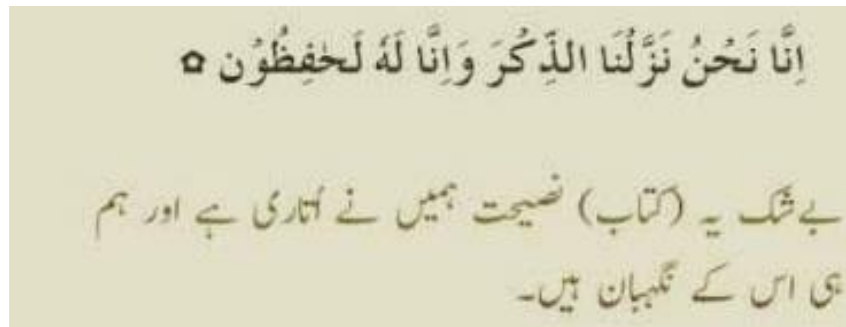 اِنَّا نَحْنُ نَزَّلْنَا الذِّكْرَ وَاِنَّا لَهٗ لَحٰفِظُوْن ۝
بے شک یہ (کتاب) نصیحت ہمیں نے اُتاری ہے اور ہم
ہی اس کے نگہبان ہیں۔